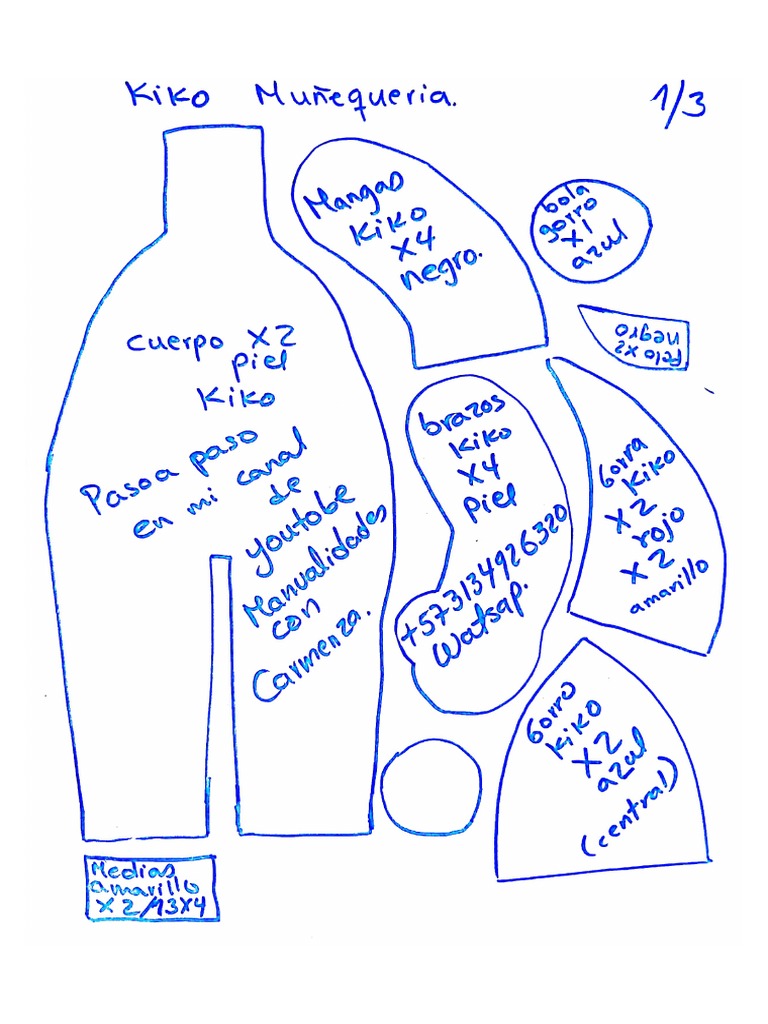 Kiko Muñequeria. 1/3
Mangas
Kiko
X4
negro.
bola
gorro
X1
azul
Pelo x2
negro
cuerpo X2
piel
Kiko
Paso a paso
en mi canal
de
youtobe
Manualidades
con
Carmenza.
brazos
Kiko
X4
Piel
+573134926320
Watsap.
Gorra
Kiko
X2
rojo
X2
amarillo
Gorro
Kiko
X2
azul
(central)
Medias
amarillo
X2/13X4